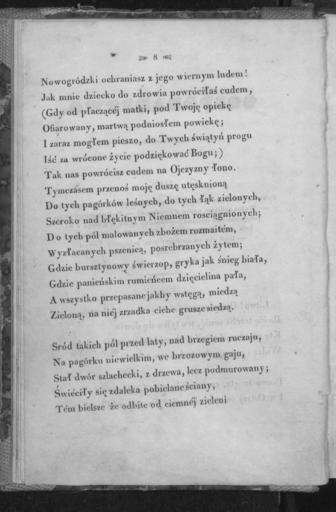 8
Nowogródzki ochraniasz z jego wiernym ludem!
Jak mnie dziecko do zdrowia powróciłaś cudem,
(Gdy od płaczącéj matki, pod Twoję opiekę
Ofiarowany, martwą podniosłem powiekę;
I zaraz mogłem pieszo, do Twych świątyń progu
Iść za wrócone życie podziękować Bogu;)
Tak nas powrócisz cudem na Ojczyzny łono.
Tymczasem przenoś moję duszę utęsknioną
Do tych pagórków leśnych, do tych łąk zielonych,
Szeroko nad błękitnym Niemnem rosciągnionych;
Do tych pól malowanych zbożem rozmaitém,
Wyzłacanych pszenicą, posrebrzanych żytem;
Gdzie bursztynowy świerzop, gryka jak śnieg biała,
Gdzie panieńskim rumieńcem dzięcielina pała,
A wszystko przepasane jakby wstęgą, miedzą
Zieloną, na niéj zrzadka ciche grusze siedzą.
Sród takich pól przed laty, nad brzegiem ruczaju,
Na pagórku niewielkim, we brzozowym gaju,
Stał dwór szlachecki, z drzewa, lecz podmurowany;
Świéciły się zdaleka pobielane ściany,
Tém bielsze że odbite od ciemnéj zieleni